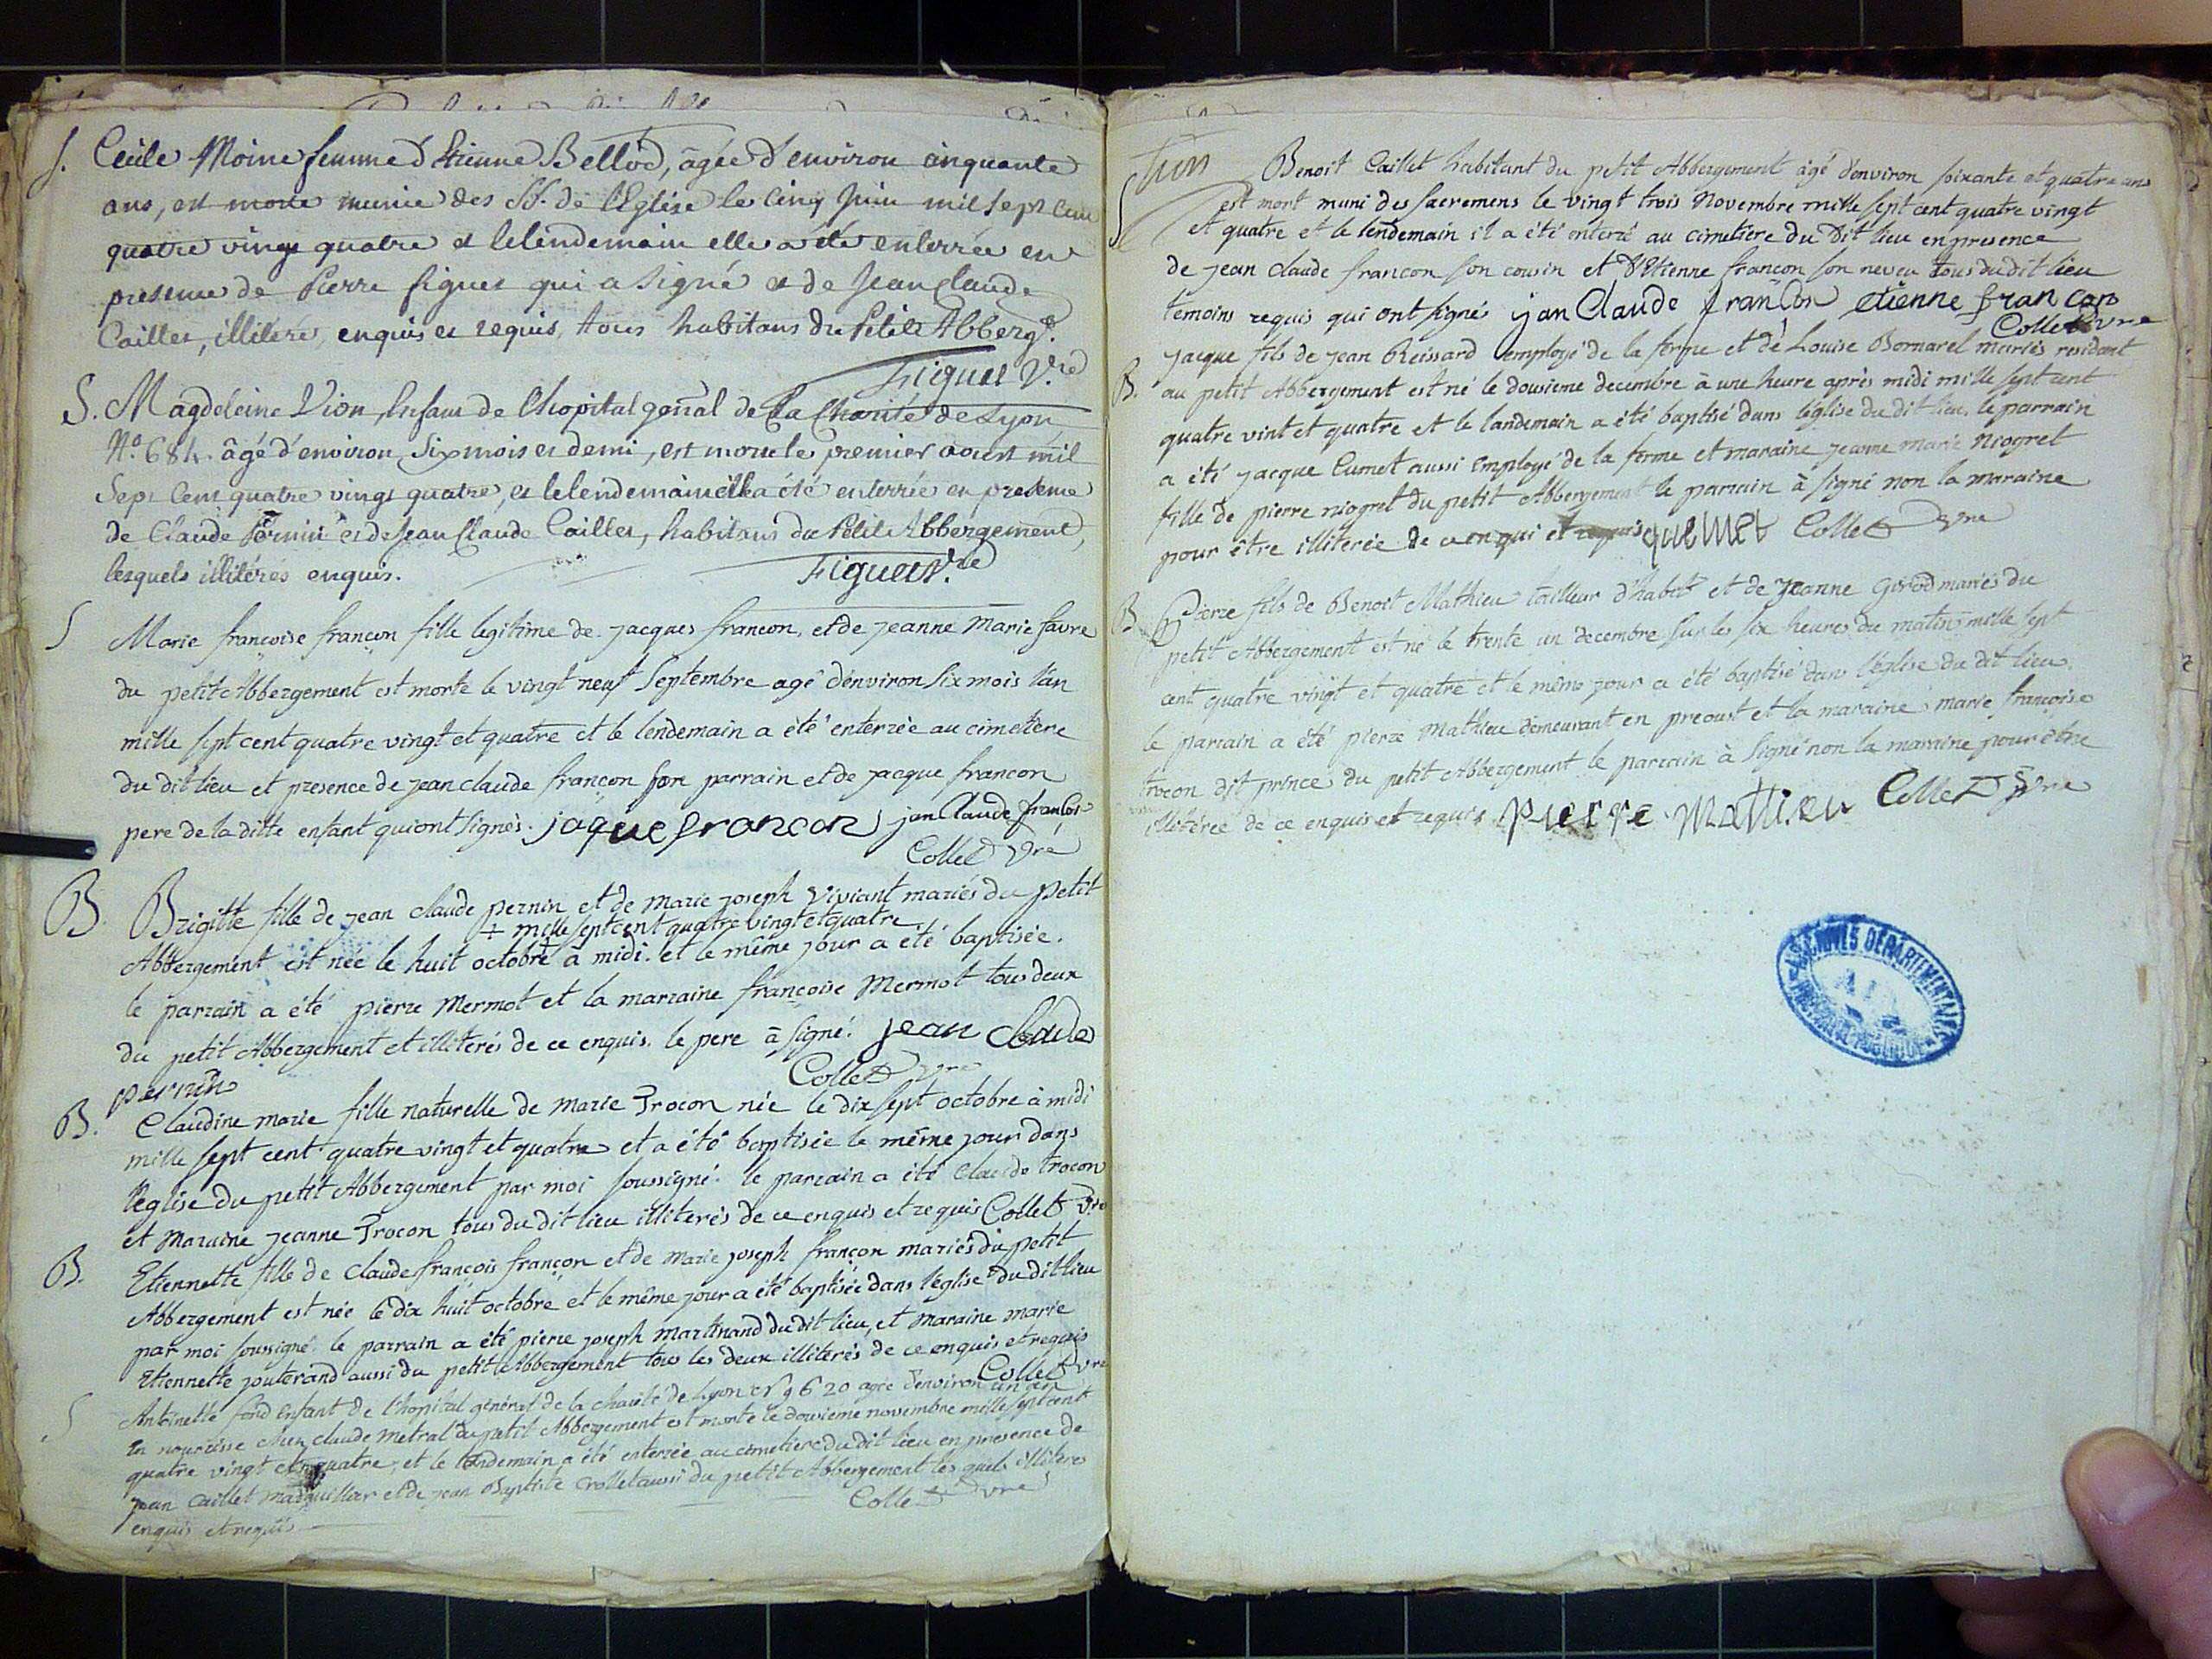 S. Cecile Moine femme d'Etienne Bellod, âgée d'environ cinquante
ans, est morte munie des SS. de l'Eglise le cinq Juin mil sept cent
quatre vingt quatre et le lendemain elle a été enterrée en
presence de Pierre figuet qui a signé et de Jean Claude
Caillet, illiteré, enquis et requis, tous habitans du Petit Abberg.t
Figuet V.re
S. Magdeleine Vion, Enfant de l'hopital gen̄al de la Charité de Lyon
N.o 684. âgé d'environ six mois et demi, est morte le premier aoust mil
sept cent quatre vingt quatre, et le lendemain elle a été enterrée en presence
de Claude Pernin et de Jean Claude Caillet, habitans du Petit Abbergement,
lesquels illiterés enquis. Figuet V.re
S Marie françoise françon fille legitime de jacques françon, et de jeanne Marie favre
du petit Abbergement est morte le vingt neuf Septembre agé d'environ six mois l'an
mille sept cent quatre vingt et quatre et le lendemain a été enterrée au cimetière
du dit lieu et presence de jean claude françon son parrain et de jacque françon
pere de la ditte enfant qui ont signés. jaque francon jan Claude francon
Collet Vre
B. Brigitte fille de jean claude pernin et de marie joseph Viviant mariés du petit
+ mille sept cent quatre vingt et quatre
Abbergement est née le huit octobre + à midi. et le même jour a été baptisée.
le parrain a été pierre Mermot et la marraine françoise Mermot tous deux
du petit Abbergement et illiterés de ce enquis. le pere à signé. jean claude
pernin Collet Vre
B. Claudine marie fille naturelle de marie Trocon née le dix sept octobre à midi
mille sept cent quatre vingt et quatre et a été baptisée le même jour dans
l'eglise du petit Abbergement par moi soussigné. le parrain a été claude trocon
et maraine jeanne Trocon tous du dit lieu illiterés de ce enquis et requis Collet Vre
B. Etiennette fille de claude françois françon et de marie joseph françon mariés du petit
Abbergement est née le dix huit octobre et le même jour a été baptisée dans l'église du dit lieu
par moi soussigné. le parrain a été pierre joseph martinand du dit lieu, et maraine marie
Etiennette jouterand aussi du petit Abbergement tous les deux illiterés de ce enquis et requis
Collet Vre
S Antoinette fond Enfant de l'hopital général de la charité de Lyon agée d'environ un an
En nourrisse chez claude metral du petit Abbergement est morte le dousieme novembre mille sept cent
quatre vingt et quatre, et le lendemain a été enterrée au cimetiere du dit lieu en presence de
jean caillet marguillier et de jean Baptiste Crollet aussi du petit Abbergement les quels illiteres
enquis et requis Collet Vre
S Benoit Caillet habitant du petit Abbergement âgé d'environ soixante et quatre ans
est mort muni des sacremens le vingt trois Novembre mille sept cent quatre vingt
et quatre et le lendemain il a été enterré au cimetiere du dit lieu en presence
de jean claude françon son cousin et d'Etienne françon son neveu tous du dit lieu
temoins requis qui ont signés jan Claude francon etienne francon
Collet Vre
jacque fils de jean Reissard employé de la ferme et de Louise Bornarel mariés residant
B. au petit Abbergement est né le dousieme decembre à une heure après midi mille sept cent
quatre vint et quatre et le landemain a été baptisé dans l'église du dit lieu, le parrain
a été jacque Cumet aussi employé de la ferme et maraine jeanne marie niogret
fille de pierre niogret du petit Abbergement le parrain à signé non la maraine
pour être illiterée de ce enqui et requis Collet Vre
B. Pierre fils de Benoit Mathieu tailleur d'habit et de jeanne Girod mariés du
petit Abbergement est né le trente un decembre sur les six heures du matin mille sept
cent quatre vingt et quatre et le même jour a été baptisé dans l'église du dit lieu.
le parrain a été pierre Mathieu demeurant en et la maraine marie françoise
trocon dit prince du petit Abbergement le parrain à signé non la maraine pour être
illiterée de ce enquis et requis pierre mathieu Collet Vre
ARCHIVES DÉPARTEMENTALES